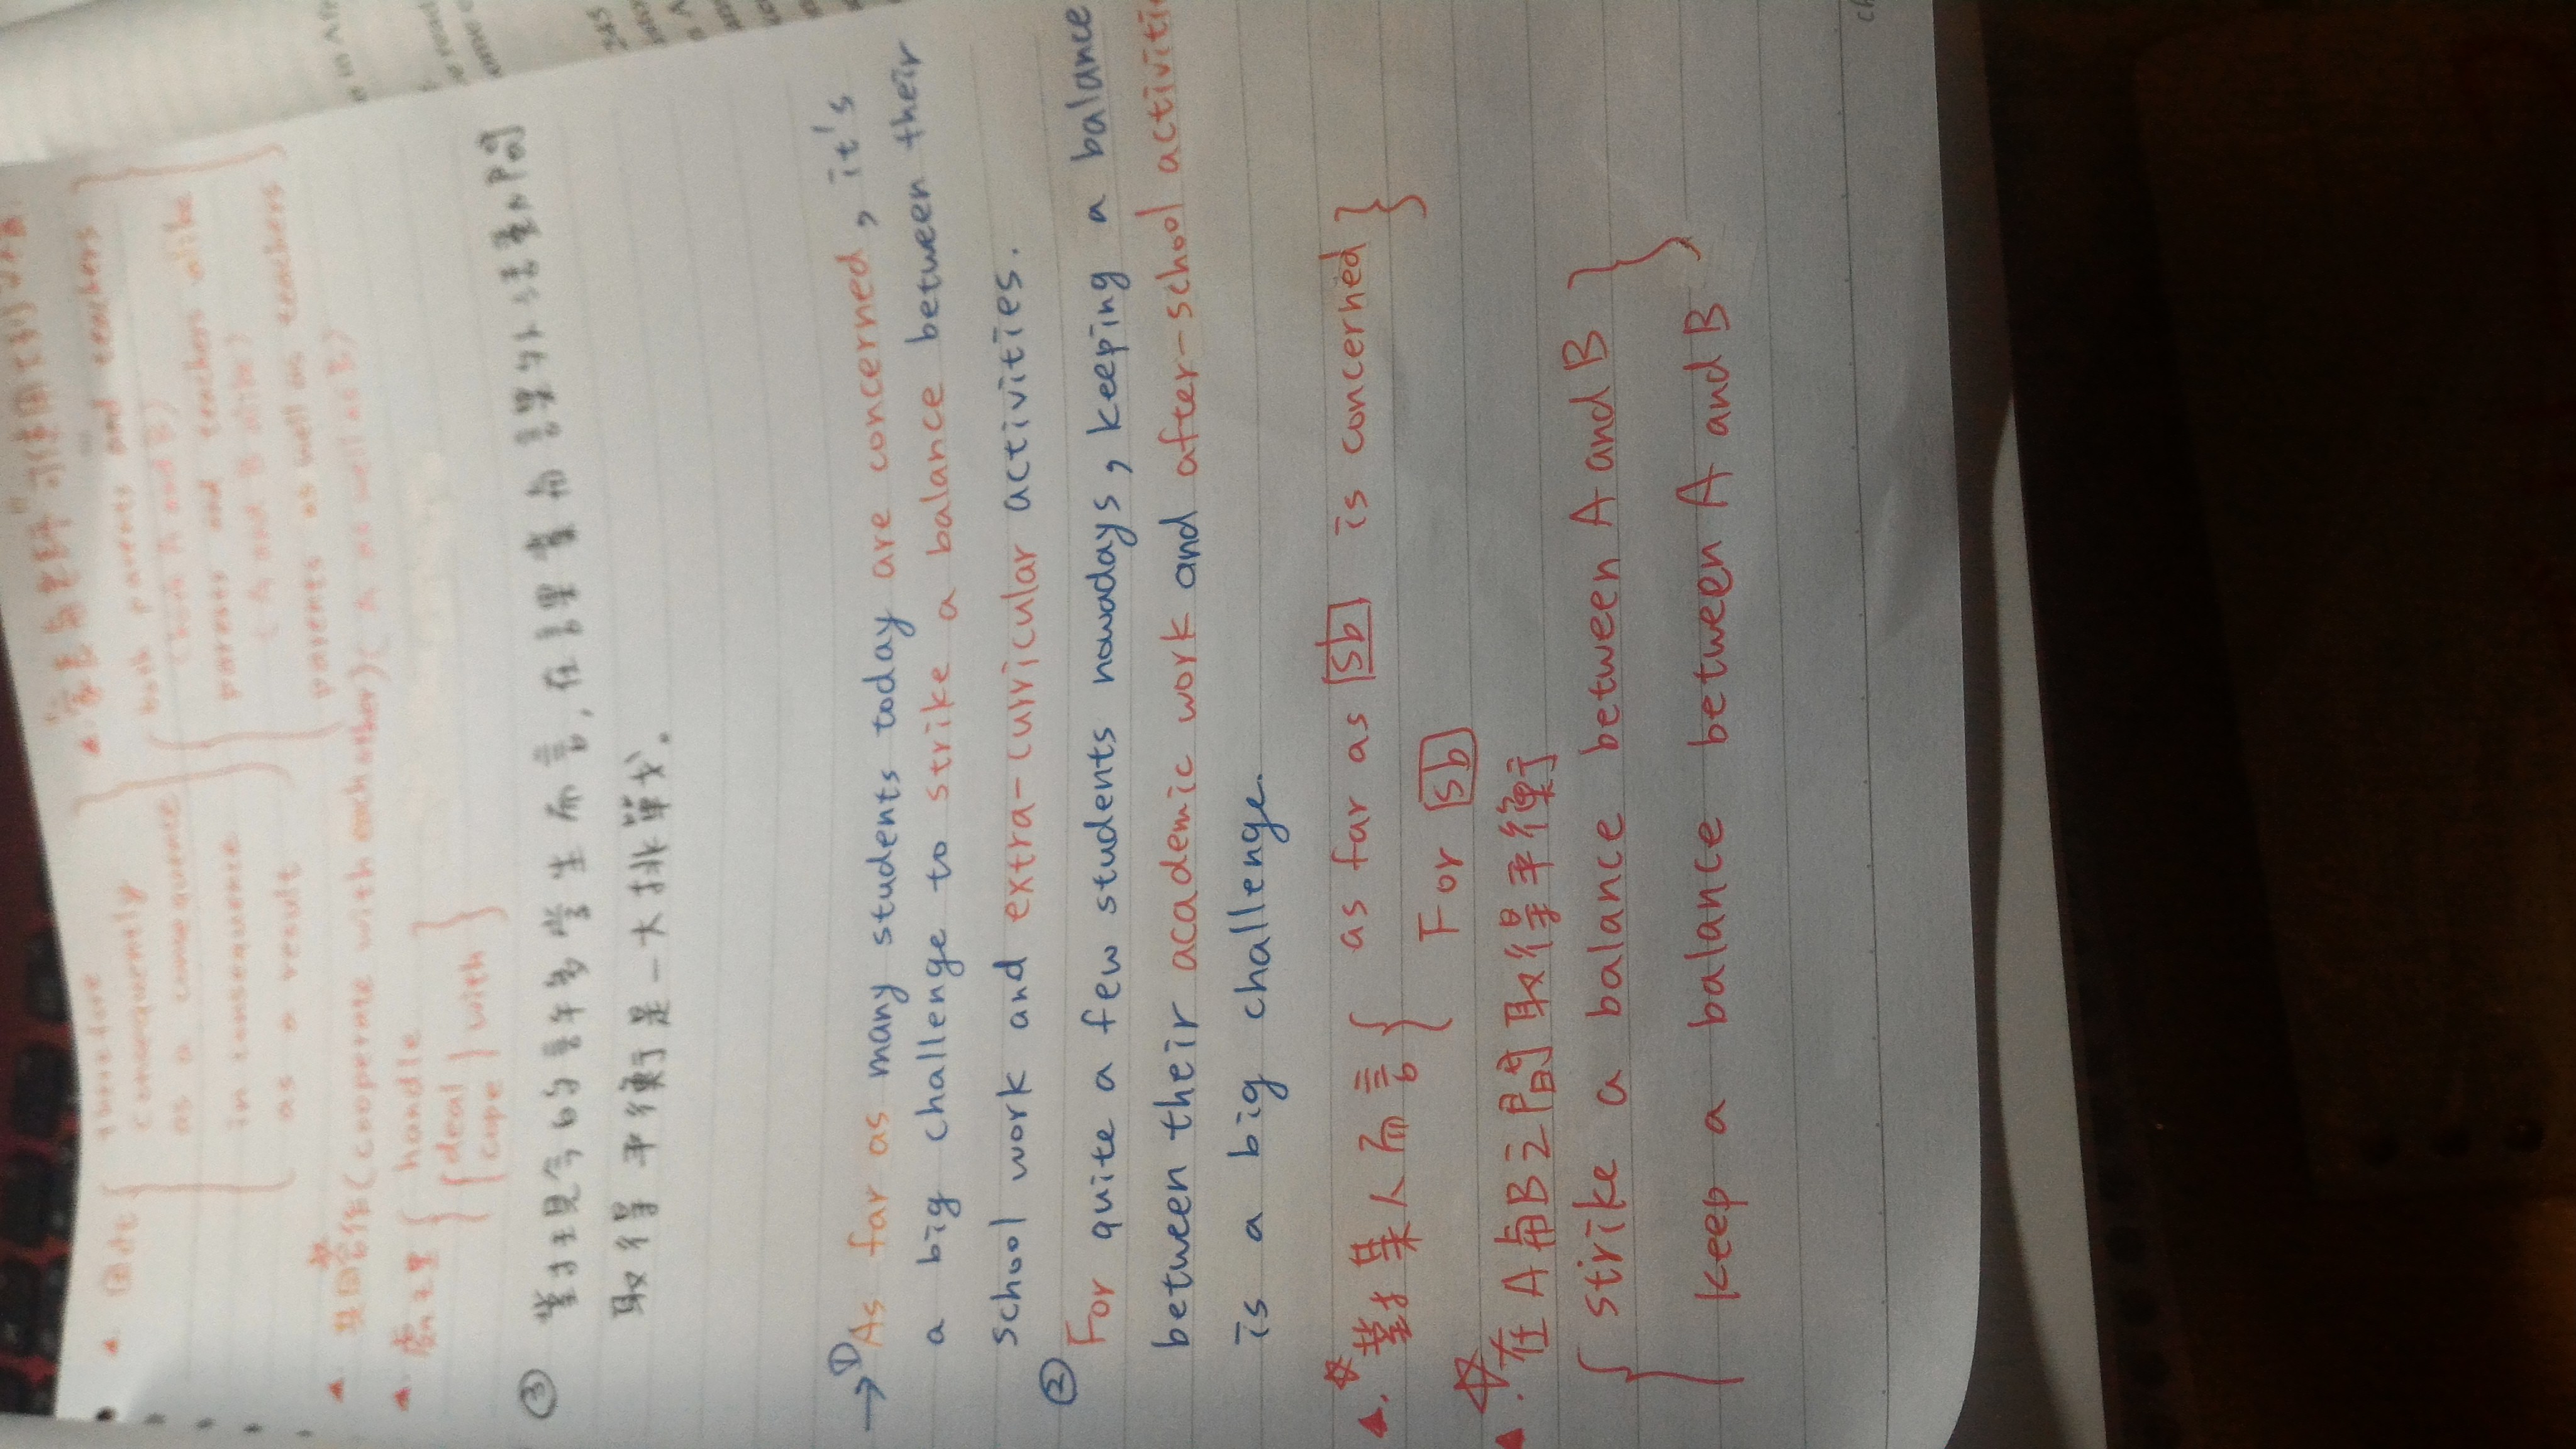 ▲ 因此 { therefore
consequently
as a consequence
in consequence
as a result }
▲ "家長與老師"
{ both parents and teachers
(both A and B)
parents and teachers alike
(A and B alike)
parents as well as teachers
(A as well as B) }
▲ 共同合作(cooperate with each other)
▲ 處理 { handle
{ deal
cope } with }
③ 對於現今的許多學生而言,在課業與課外活動間
取得平衡是一大挑戰。
→① As far as many students today are concerned, it's
a big challenge to strike a balance between their
school work and extra-curricular activities.
② For quite a few students nowadays, keeping a balance
between their academic work and after-school
is a big challenge.
▲.☆ 對於某人而言 { as far as sb is concerned }
For sb
▲.☆ 在A與B之間取得平衡
{ strike a balance between A and B }
keep a balance between A and B